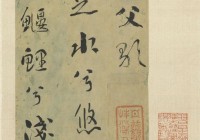 父歌
之水兮悠
鰋鯉兮淺